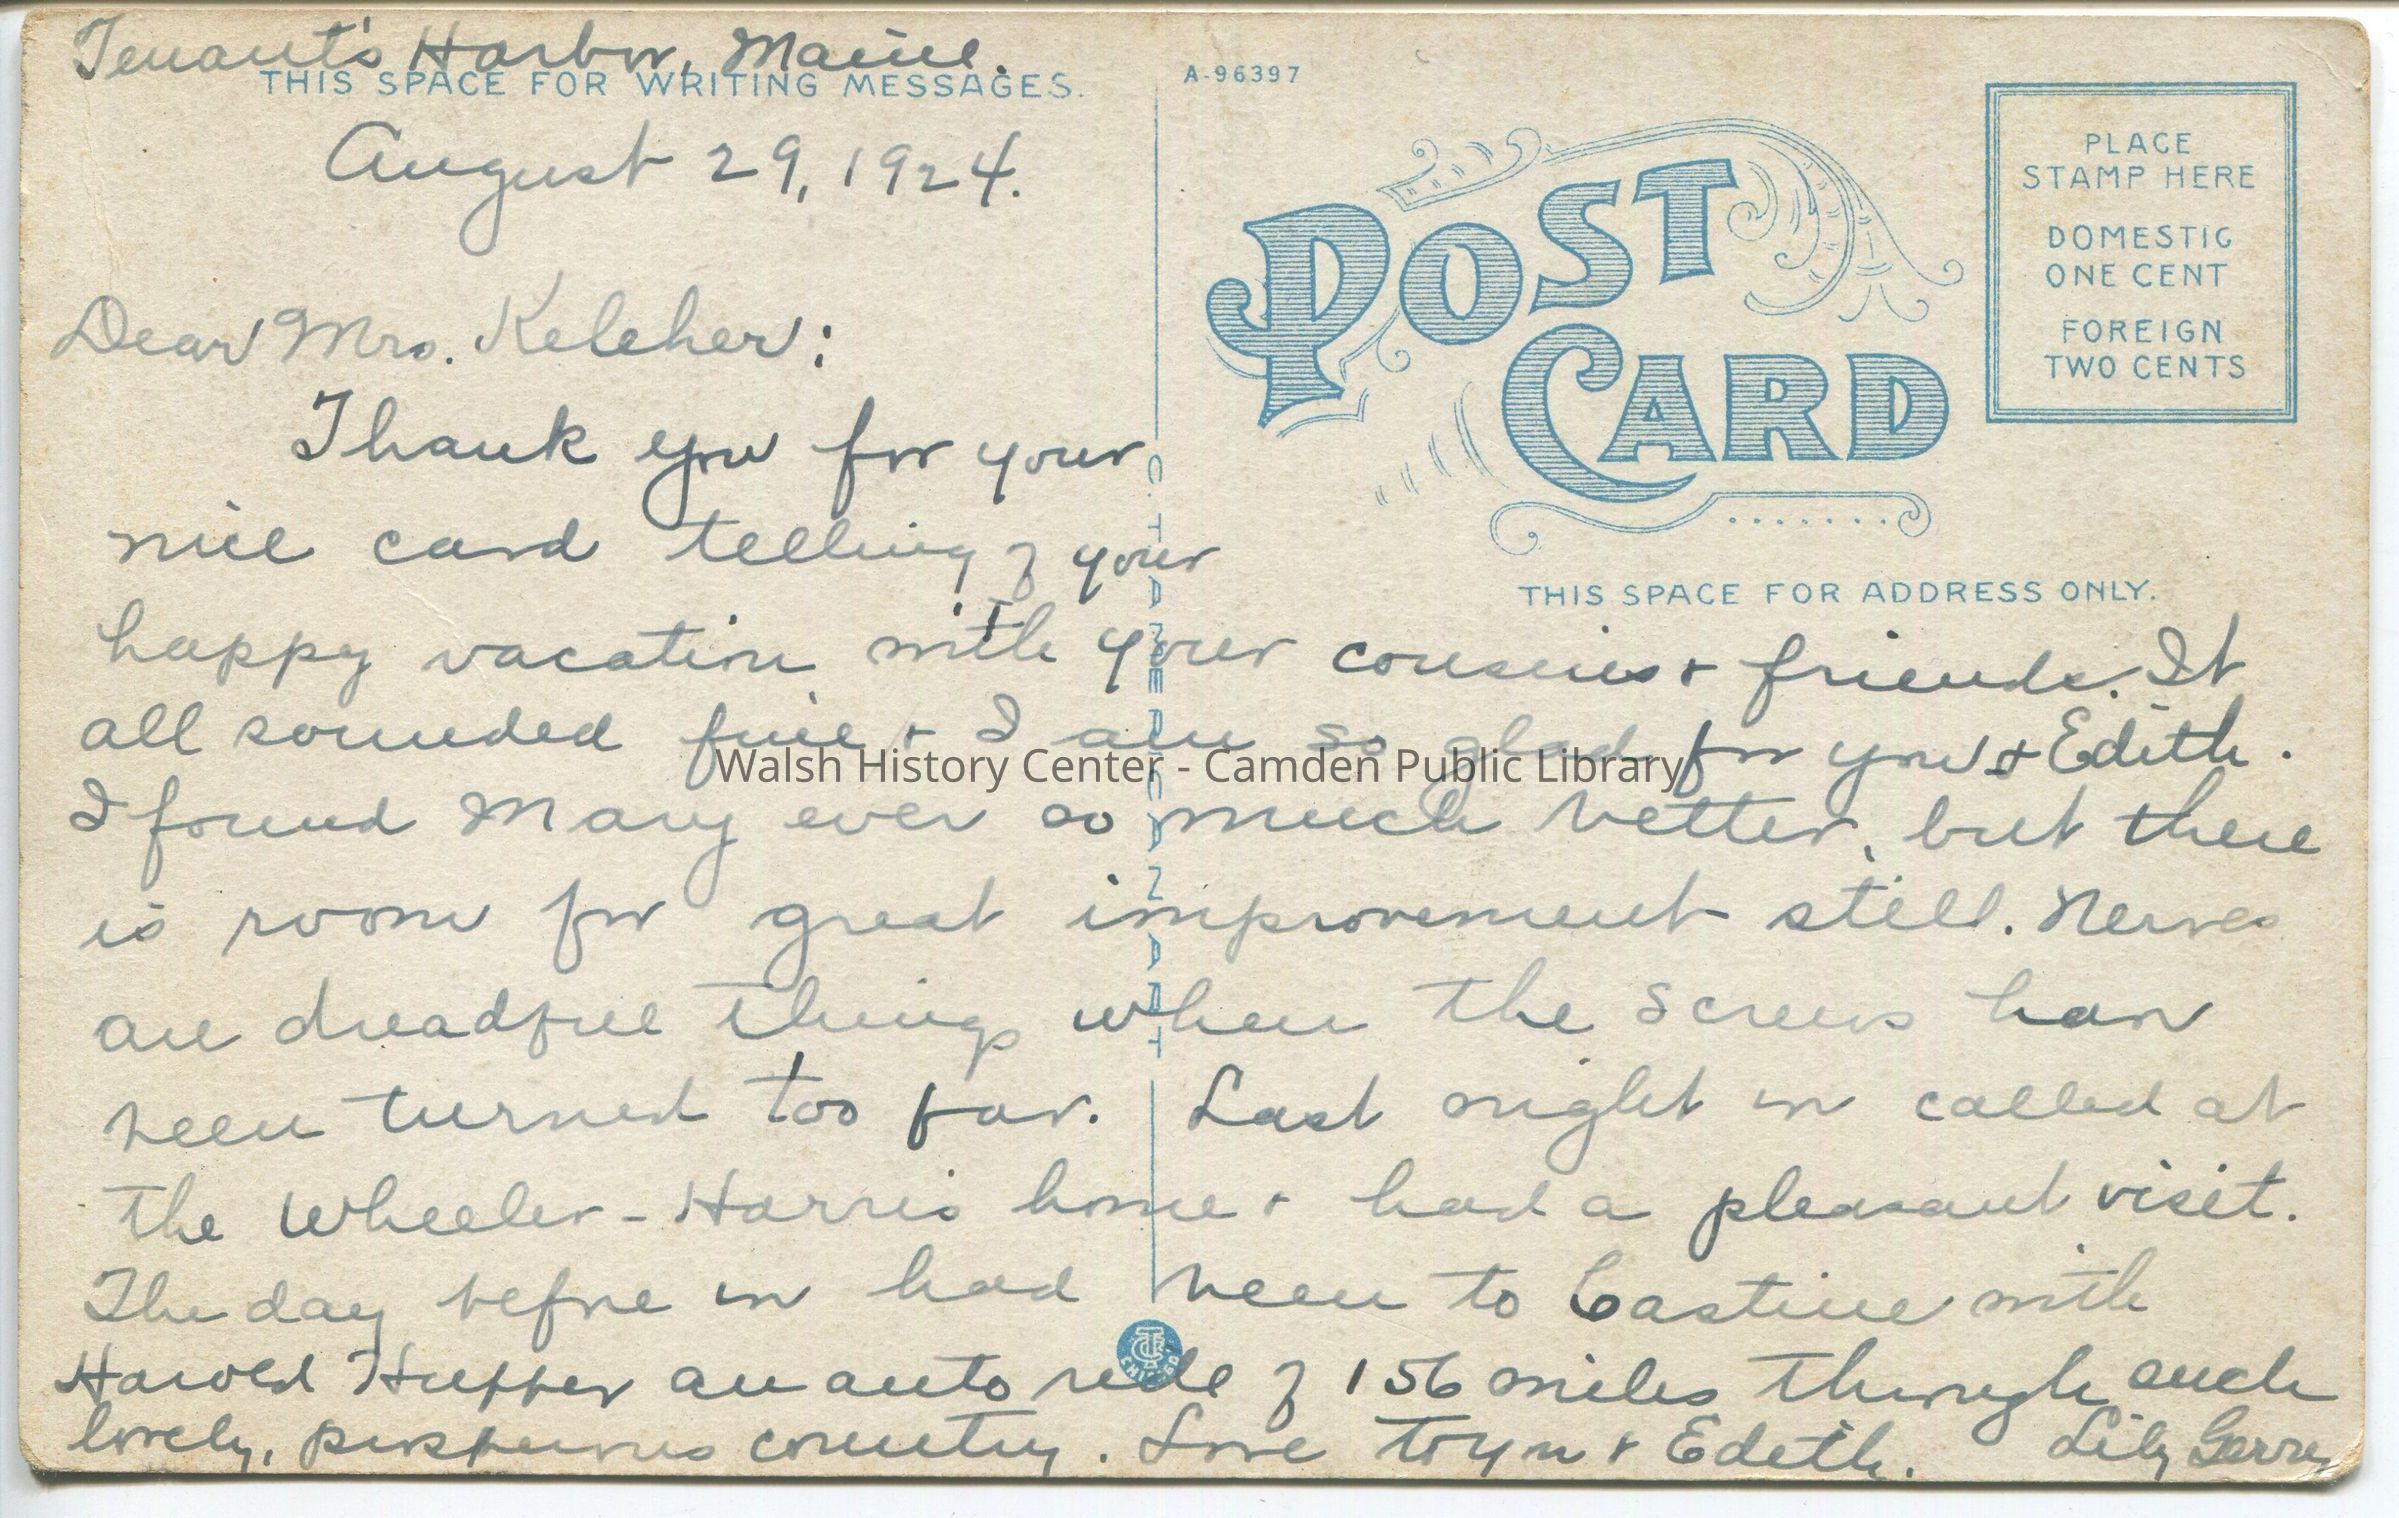 Tenant's Harbor, Maine.
THIS SPACE FOR WRITING MESSAGES.
August 29, 1924.
Dear Mrs. Keleher:
Thank you for your
nice card telling of your
happy vacation with your cousins + friends. It
all sounded fine + I am so glad for you + Edith.
I found Mary ever so much better, but there
is room for great improvement still. Nerves
are dreadful things when the screws have
been turned too far. Last night we called at
the Wheeler-Harris home + had a pleasant visit.
The day before we had been to Castine with
Harold Hupper an auto ride of 156 miles through such
lovely, prosperous country. Love to you + Edith. Lily Gorrey
A-96397
POST
CARD
PLACE
STAMP HERE
DOMESTIC
ONE CENT
FOREIGN
TWO CENTS
THIS SPACE FOR ADDRESS ONLY.
C.T. AMERICAN ART
Walsh History Center - Camden Public Library